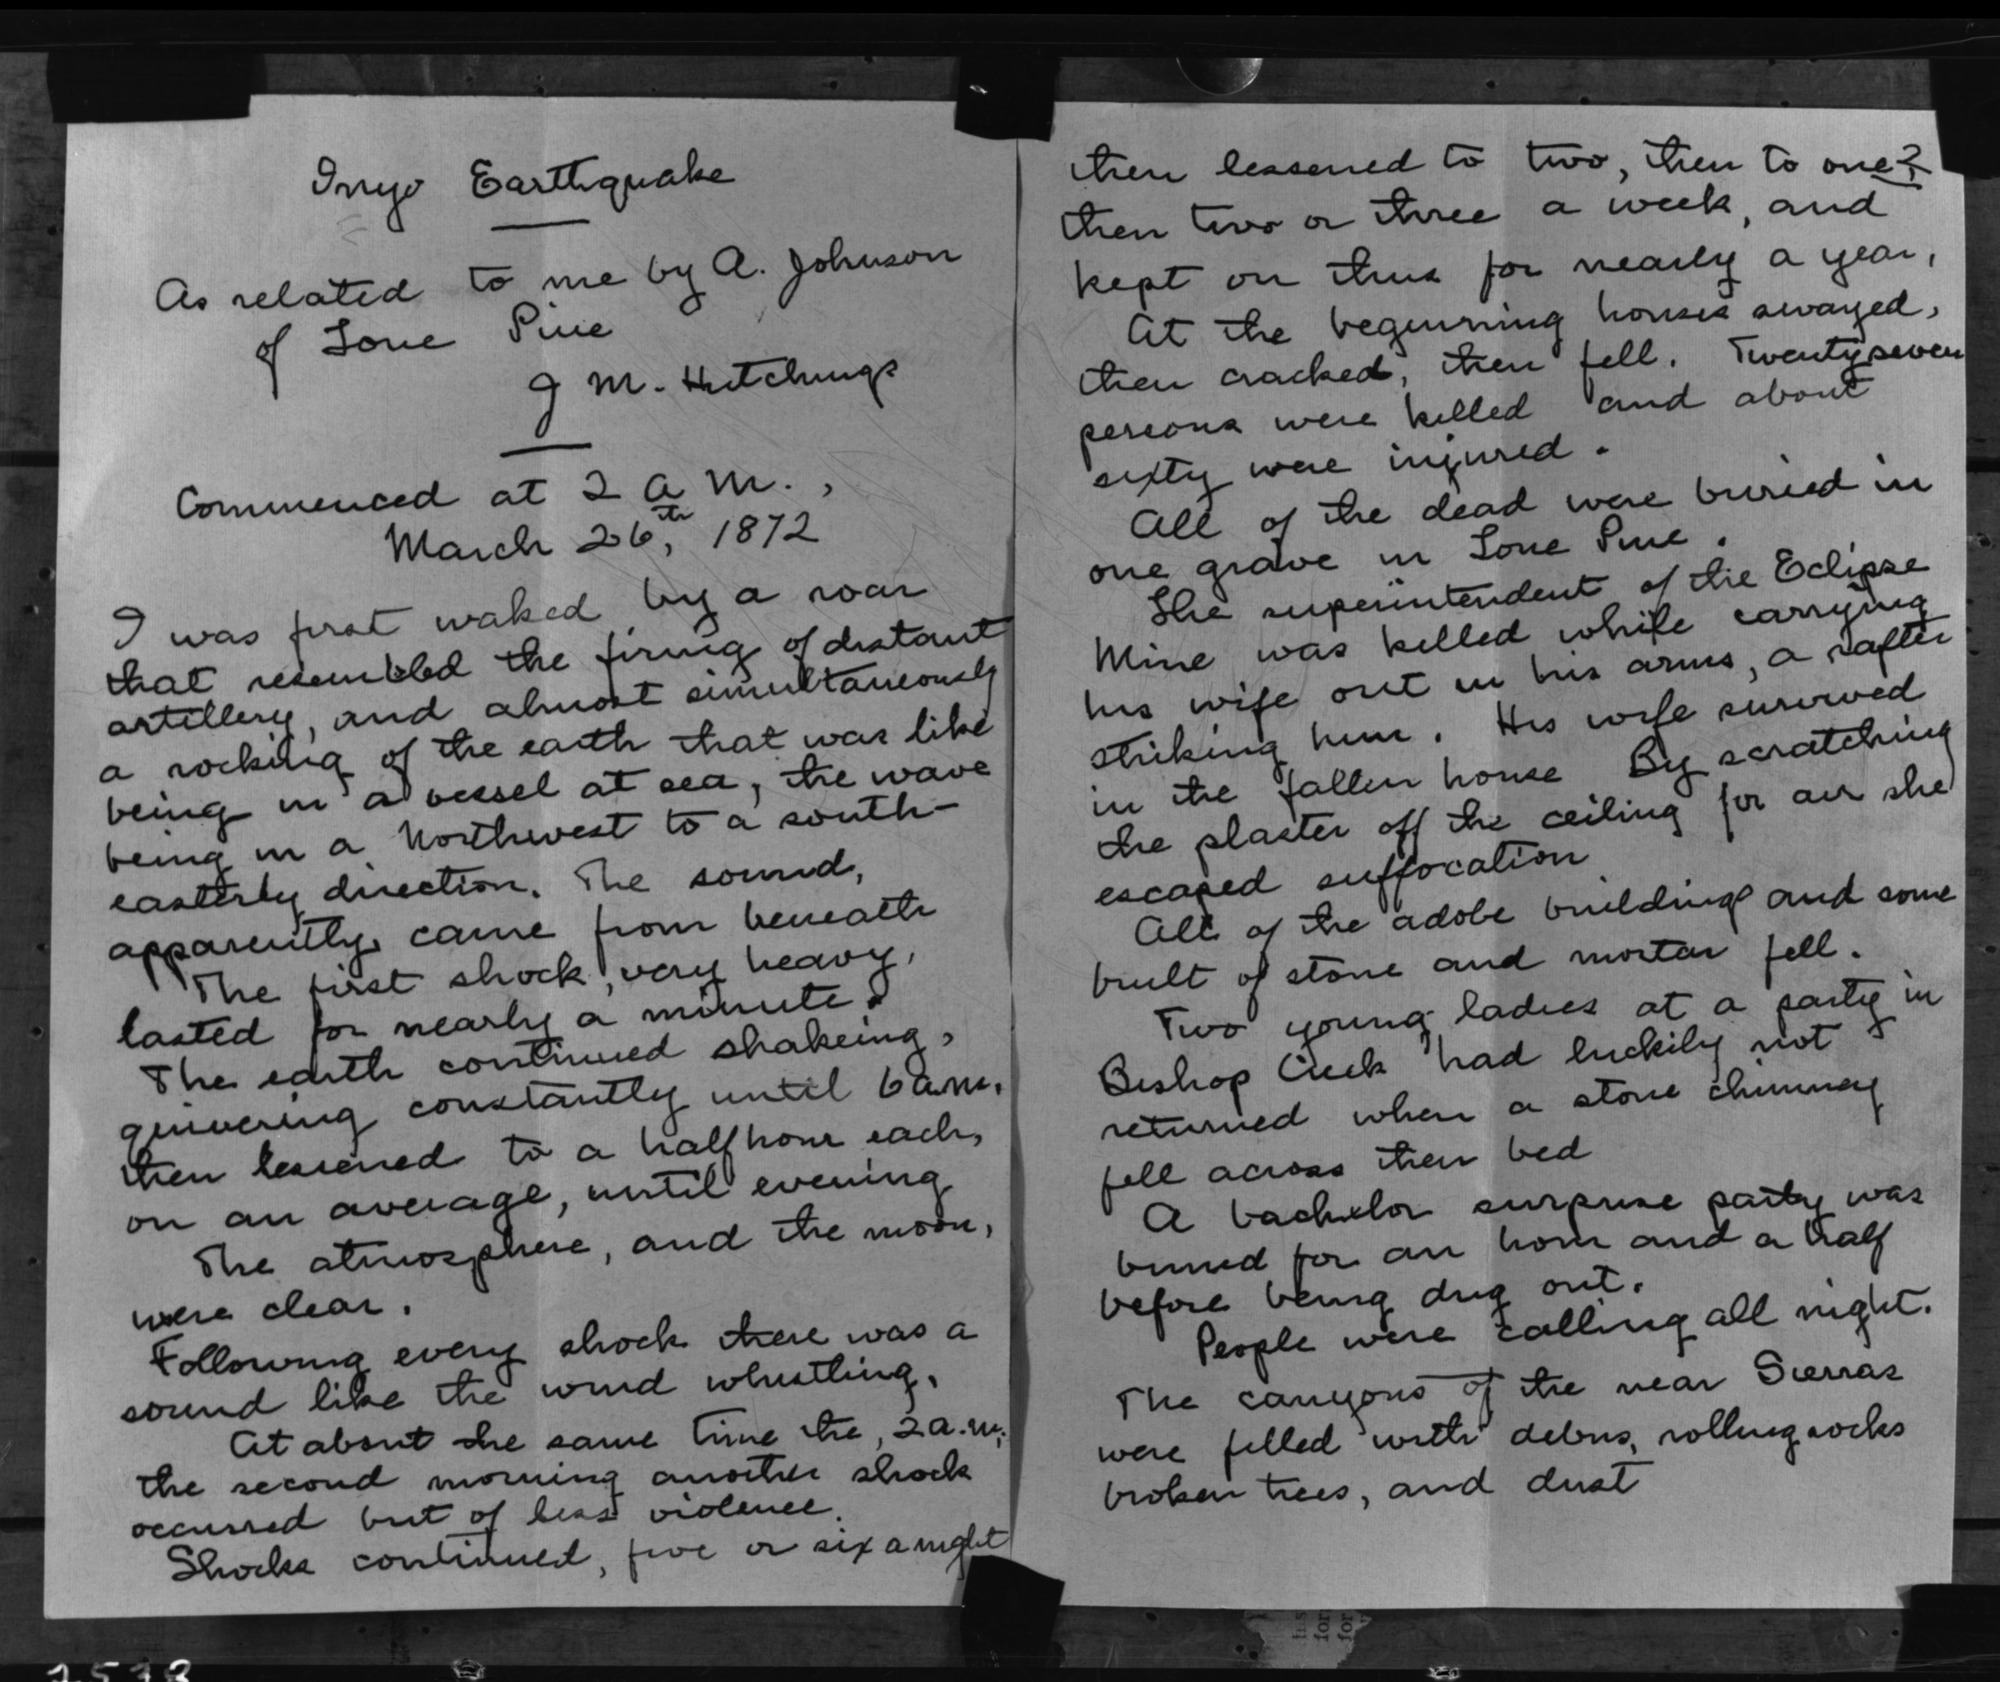 Inyo Earthquake
As related to me by A. Johnson
of Lone Pine
J M. Hutchings
Commenced at 2 a m.,
March 26th, 1872
I was first waked by a roar
that resembled the firing of distant
artillery, and almost simultaneously
a rocking of the earth that was like
being in a vessel at sea, the wave
being in a Northwest to a south-
easterly direction. The sound,
apparently, came from beneath
The first shock, very heavy,
lasted for nearly a minute.
The earth continued shakeing,
quivering constantly until 6 a.m.
then lessened to a half hour each,
on an average, until evening
The atmosphere, and the moon,
were clear.
Following every shock there was a
sound like the wind whistling.
At about the same time the, 2 a.m,
the second morning another shock
occurred but of less violence.
Shocks continued, five or six a night
then lessened to two, then to one?
then two or three a week, and
kept on thus for nearly a year,
At the beginning houses swayed,
then cracked, then fell. Twentyseven
persons were killed and about
sixty were injured.
All of the dead were buried in
one grave in Lone Pine.
The superintendent of the Eclipse
Mine was killed while carrying
his wife out in his arms, a rafter
striking him. His wife survived
in the fallen house By scratching
the plaster off the ceiling for air she
escaped suffocation
All of the adobe buildings and some
built of stone and mortar fell.
Two young ladies at a party in
Bishop Creek had luckily not
returned when a stone chimney
fell across their bed
A bachelor surprise party was
buried for an hour and a half
before being dug out.
People were calling all night.
The canyons of the near Sierras
were filled with debris, rolling rocks
broken trees, and dust
2538